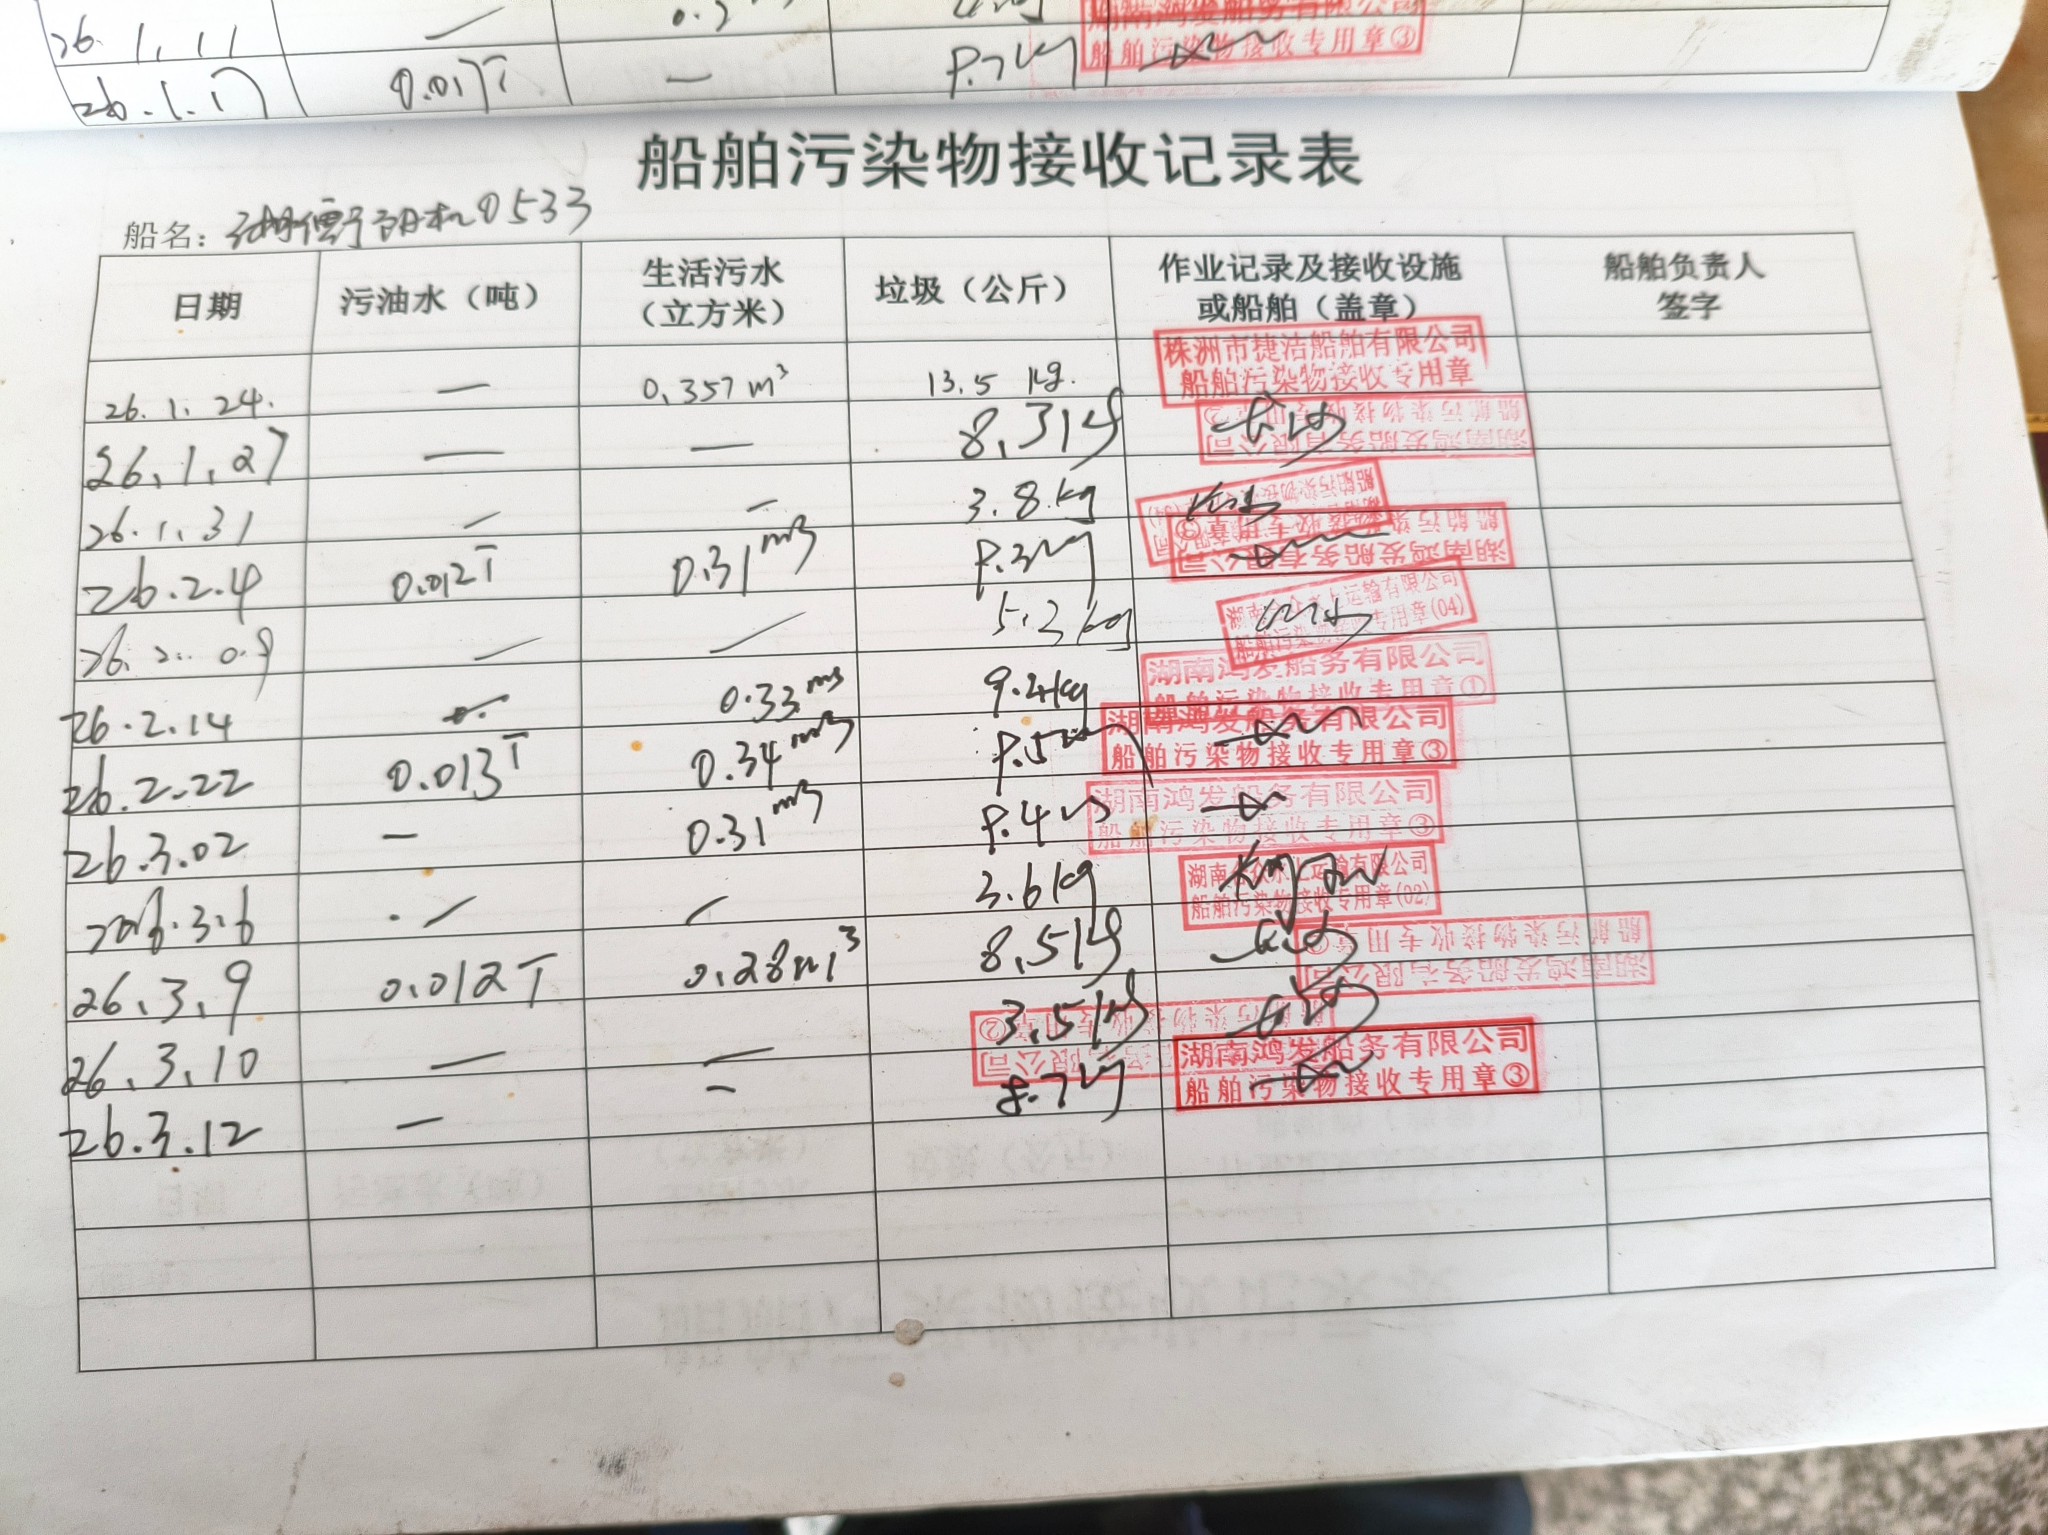 26.1.11 —
26.1.17 0.017T — 8.7kg
船舶污染物接收专用章③
船舶污染物接收记录表
船名: 0533
日期 污油水（吨） 生活污水（立方米） 垃圾（公斤） 作业记录及接收设施或船舶（盖章） 船舶负责人签字
26.1.24. — 0.357m³ 13.5 kg. 株洲市捷洁船舶有限公司 船舶污染物接收专用章
26.1.27 — — 8.3kg 湖南鸿发船务有限公司 船舶污染物接收专用章②
26.1.31 — — 3.8kg
26.2.4 0.012T 0.31m3 8.3kg 湖南鸿发船务有限公司 船舶污染物接收专用章③
26.2.09 — — 5.3kg 船舶污染物接收专用章(04)
26.2.14 — 0.33m3 9.2kg 湖南鸿发船务有限公司 船舶污染物接收专用章①
26.2.22 0.013T 0.34m3 8.5kg 湖南鸿发船务有限公司 船舶污染物接收专用章③
26.3.02 — 0.31m3 8.4kg 湖南鸿发船务有限公司 船舶污染物接收专用章③
2026.3.6 — — 3.6kg 船舶污染物接收专用章(02)
26.3.9 0.012T 0.28m³ 8.5kg 湖南鸿发船务有限公司 船舶污染物接收专用章②
26.3.10 — — 3.5kg 船舶污染物接收专用章②
26.3.12 — — 8.7kg 湖南鸿发船务有限公司 船舶污染物接收专用章③